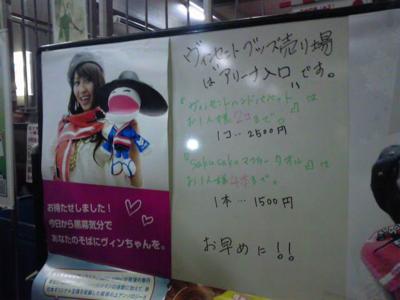 お待たせしました!
今日から黒幕気分で
あなたのそばにヴィンちゃんを。
ヴィンセントグッズ売り場
は"アリーナ入口"です。
『ヴィンセントハンドパペット』は
お1人様2コまで。
1コ…2500円
『Saku Saku マフラータオル』は
お1人様4本まで。
1本…1500円
お早めに!!